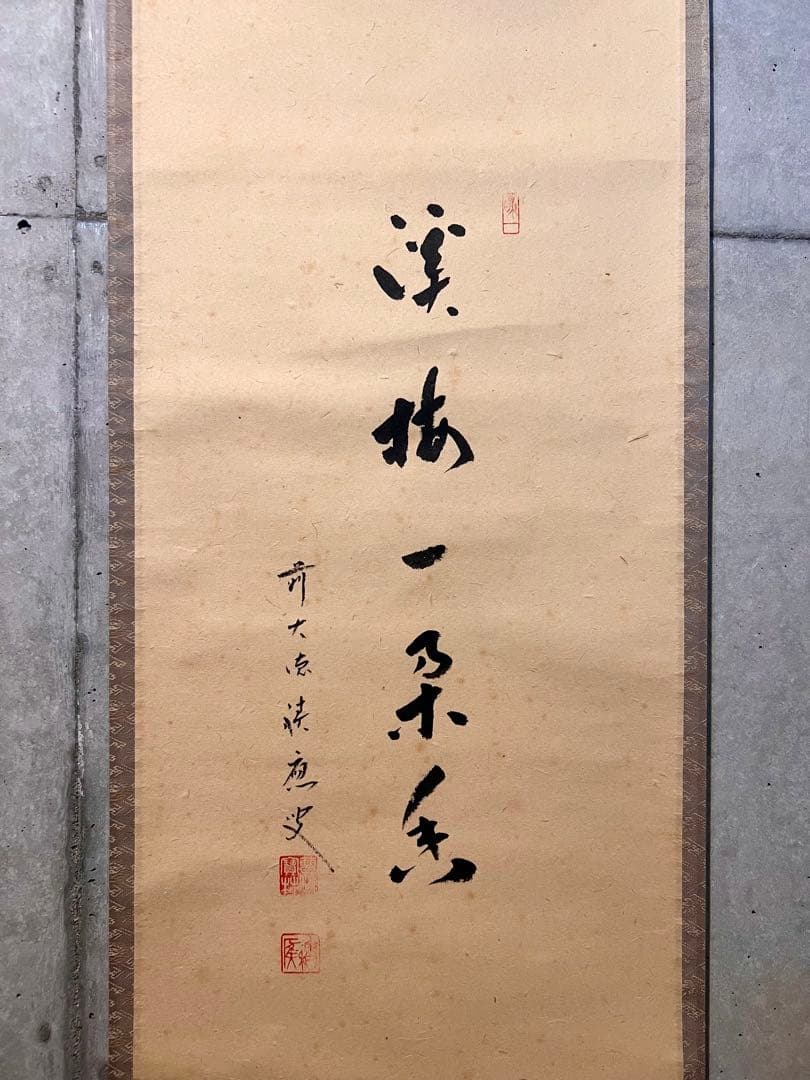 渓梅一朶香
前大徳績應叟